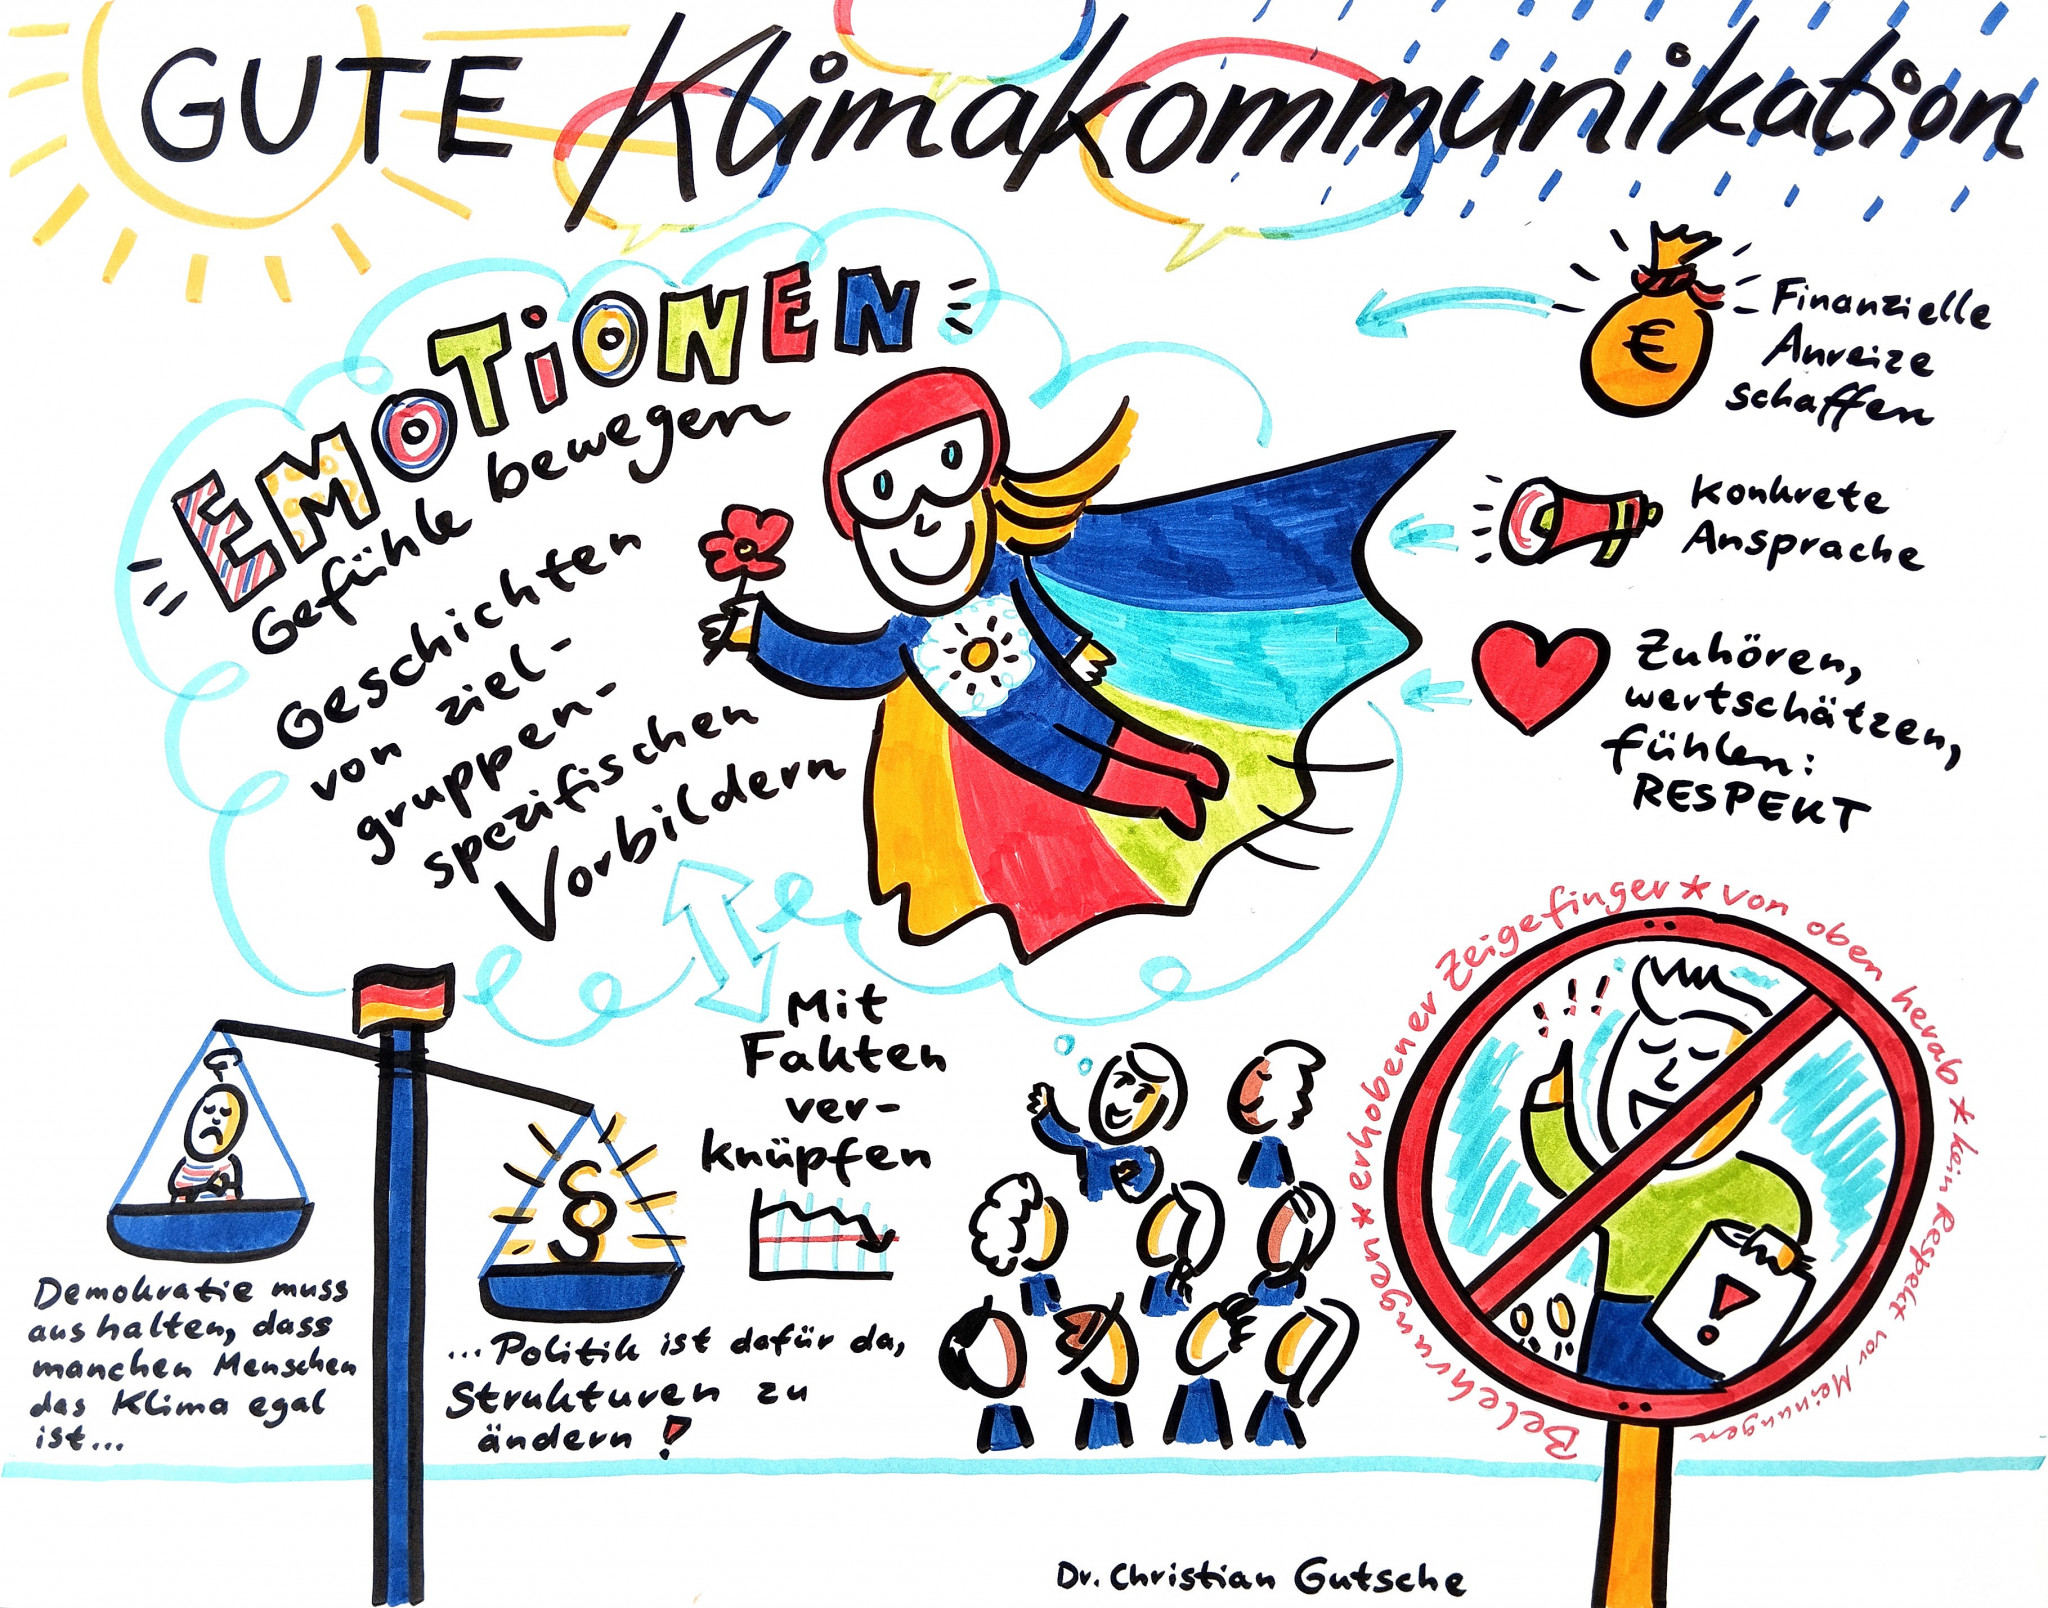 GUTE Klimakommunikation
EMOTIONEN
Gefühle bewegen
Geschichten
von ziel-
gruppen-
spezifischen
Vorbildern
€
Finanzielle
Anreize
schaffen
Konkrete
Ansprache
Zuhören,
wertschätzen,
fühlen:
RESPEKT
Mit
Fakten
ver-
knüpfen
§
Demokratie muss
aushalten, dass
manchen Menschen
das Klima egal
ist...
...Politik ist dafür da,
Strukturen zu
ändern!
Belehrungen * erhobener Zeigefinger * von oben herab * kein Respekt vor Meinungen
!!!
!
Dr. Christian Gutsche